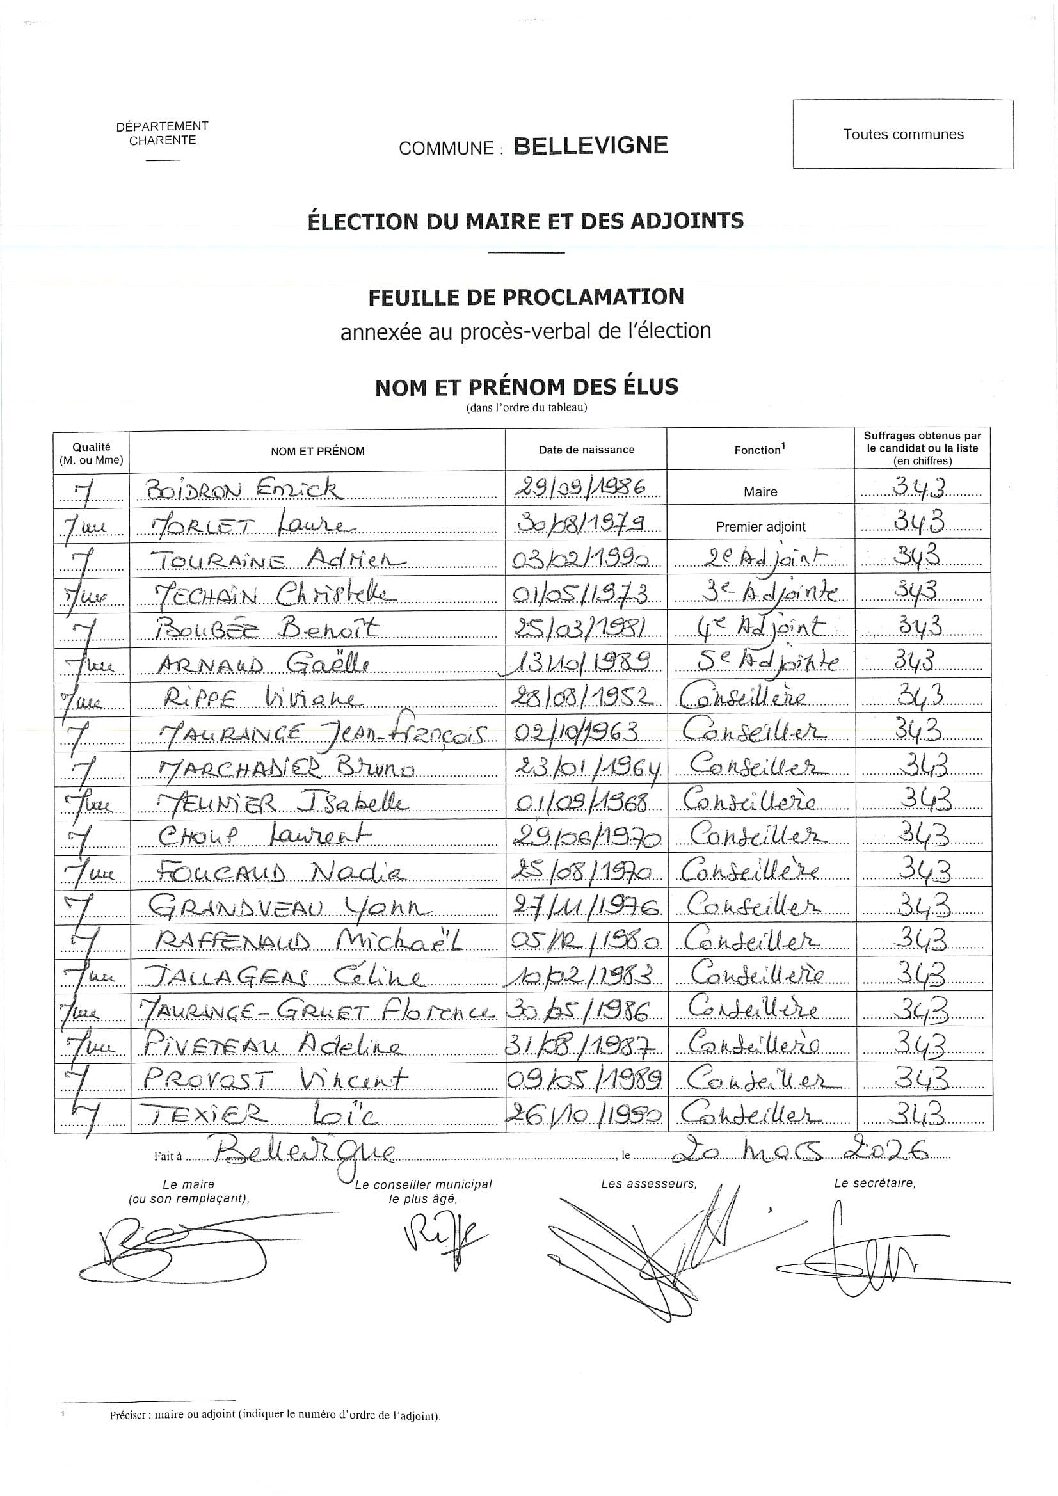 DÉPARTEMENT
CHARENTE
COMMUNE : BELLEVIGNE
Toutes communes
ÉLECTION DU MAIRE ET DES ADJOINTS
FEUILLE DE PROCLAMATION
annexée au procès-verbal de l'élection
NOM ET PRÉNOM DES ÉLUS
(dans l'ordre du tableau)
Qualité (M. ou Mme) NOM ET PRÉNOM Date de naissance Fonction1 Suffrages obtenus par le candidat ou la liste (en chiffres)
M BOIDRON Enrick 29/09/1986 Maire 343
Mme MORLET Laure 30/08/1979 Premier adjoint 343
M TOURAINE Adrien 03/02/1990 2e Adjoint 343
Mme MECHAIN Christelle 01/05/1973 3e Adjointe 343
M BOUBÉE Benoît 25/03/1981 4e Adjoint 343
Mme ARNAUD Gaëlle 13/10/1989 5e Adjointe 343
Mme RIPPE Viviane 28/08/1952 Conseillère 343
M MAURANGE Jean-François 02/10/1963 Conseiller 343
M MARCHADIER Bruno 23/01/1964 Conseiller 343
Mme MEUNIER Isabelle 01/09/1968 Conseillère 343
M CHOUP Laurent 29/06/1970 Conseiller 343
Mme FOUCAUD Nadia 25/08/1970 Conseillère 343
M GRANDVEAU Yann 27/11/1976 Conseiller 343
M RAFFENAUD Michaël 05/12/1980 Conseiller 343
Mme JALLAGEAS Céline 10/02/1983 Conseillère 343
Mme MAURINGE-GRUET Florence 30/05/1986 Conseillère 343
Mme PIVETEAU Adeline 31/08/1987 Conseillère 343
M PROVOST Vincent 09/05/1989 Conseiller 343
M TEXIER Loïc 26/10/1990 Conseiller 343
Fait à Bellevigne, le 20 mars 2026
Le maire
(ou son remplaçant),
Le conseiller municipal
le plus âgé,
Les assesseurs,
Le secrétaire,
Rippe
1 Préciser : maire ou adjoint (indiquer le numéro d'ordre de l'adjoint).